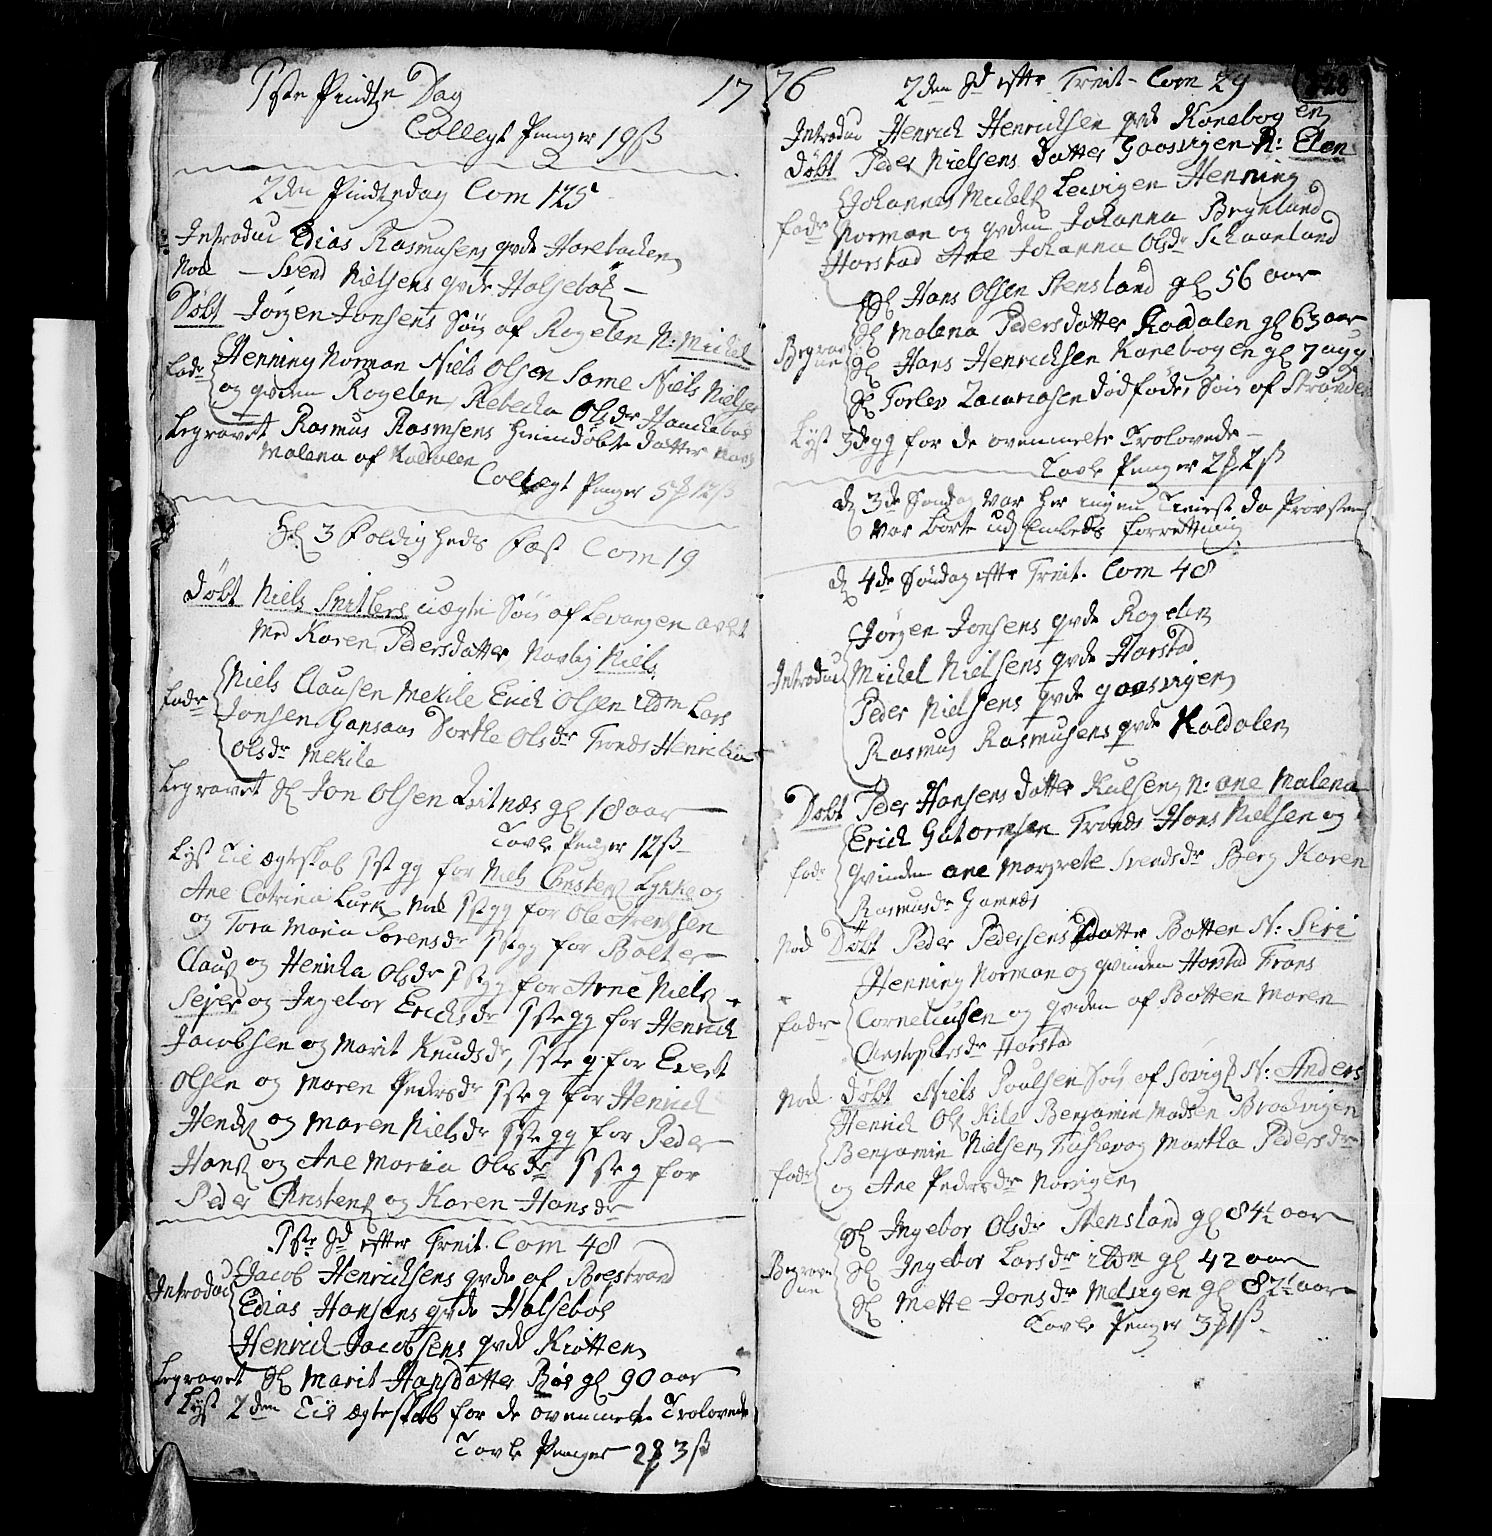 1ste Pindtze Dag 17
Collegt Penger 19 ß
2den Pindtzedag Com 125
Introduc Edias Rasmusens qvde Horebachen
Nod — Svend Nielsens qvde Halsebøe —
Døbt Jørgen Jonsens Søn af Rogelen N: Michel
fadr Henning Norman Niels Olsen Same Niels Nielsen
og qvden Rogelen, Rebecka Olsdr Hanckebøe
begravet Rasmus Rasmsens hiemdøbte datter navn
Malena af Kaldalen
Collegt Penger 5 12 ß
3 Foldigheds Fæst Com 19
Døbt Niels Snitlers uægte Søn af Levangen avlet
Med Karen Pedersdatter, Navlig Niels
fadr Niels Clausen Mekile Erich Olsen ibdm Lars
Jonsen Gansaas Dorthe Olsdr Trones Henricha
Olsdr Mekile
begravet Jon Olsen qvitnæs gl 18 aar
Tavle Penger 12 ß
Lyst Til Ægteskab 1ste gg for Niels Christens Lykke og
Ane Catrina Lurk Nod 1ste gg for Ole Arentsen
og Tora Maria Sørensdr 1ste gg for Bolter
Claus og Henicka Olsdr 1ste gg for Arne Niels
Sejer og Ingebor Erichsdr 1ste gg for Henrich
Jacobsen og Marit Knudsdr, 1ste g for Evert
Olsen og Maren Pedersdr 1ste g for Henrich
Hends og Maren Nielsdr 1ste gg for Peder
Hans og Ane Maria Olsdr 1ste g for
Peder Christens og Karen Hansdr
1ste Sd efter Trinit. Com 48
Introduc Jacob Henrichsens qvde af Brestrand
Edias Hansens qvde Halsebøe
Henrich Jacobsens qvde Kiøtten
begravet Marit Hansdatter Røe gl 90 aar
Lyst 2den Til Ægteskab for de ovenmelte Trolovede
Tavle Penger 2 3 ß
76 2den Sd efter Trinit - Com 29 228
Introduc Henrich Henrichsen qvde Kanebogen
Døbt Peder Nielsens datter Gaasvigen N: Elen
fadr Johannes Michels Lervigen Henning
Norman og qvden Johanna Brynland
Harstad Ane Johanna Olsdr Schaanland
Begravne Hans Olsen Stensland gl 56 aar
Malena Pedersdatter Kaldalen gl 63 aar
Hans Henrichsen Kanebogen gl 7 ugg
Torlev Zacariasen dødføde Søn af Stranden
Lyst 3de gg for de ovenmelte Trolovede —
Tavle Penger 2 2 ß
d 3de Søndag var her ingen Tieniste da Provsten
var borte udj Embeds forretning
d 4de Søndag efter Trinit. Com 48
Introduc Jørgen Jonsens qvde Rogelen
Michel Nielsens qvde Harstad
Peder Nielsens qvde Gaasvigen
Rasmus Rasmusens qvde Kaldalen
Døbt Peder Hansens datter Kulseng N: Ane Malena
fadr Erich Gutormsen Trones Hans Nielsen og
qvinden Ane Margrete Svendsdr Berg Karen
Rasmusdr Gamnes
Nod Døbt Peder Pedersens datter Botten N: Siri
fadr Henning Norman og qvinden Harstad Frans
Corneliusen og qvden af Botten Maren
Christophersdr Harstad
Nod Døbt Niels Poulsen Søn af Sørvig N: Anders
fadr Henrich Ols Kile Benjamin Madsen Brochvigen
Benjamin Nielsen Martha Pedersdr
og Ane Pedersdr Norvigen
Begravne Ingebor Olsdr Stensland gl 84½ aar
Ingebor Larsdr ibdm gl 42 aar
Mette Jonsdr Melvigen gl 82½ aar
Tavle Penger 3 1 ß